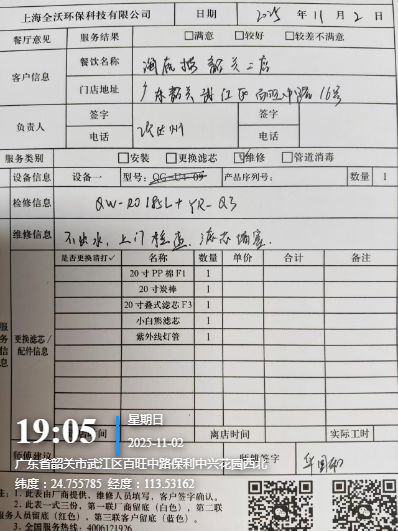 上海全沃环保科技有限公司 日期 2025 年 11 月 2 日
餐厅意见 服务结果 □满意 □较好 □较差不满意
客户信息 餐饮名称 韶关二店
门店地址 广东韶关武江区百旺中路16号
负责人 签字 签字
电话 电话
服务类别 □安装 □更换滤芯 ☑维修 □管道消毒
设备信息 设备一 型号: 产品序列号: 数量 1
检修信息 QW-RO185L+YR-Q3
维修信息 不出水,上门检查,滤芯堵塞.
是否更换请打✓ 名称 数量 单价 合计 备注
更换滤芯/配件信息
20寸PP棉F1 1
20寸炭棒 1
20寸叠式滤芯F3 1
小白熊滤芯 1
紫外线灯管 1
离店时间 实际工时
师傅建议 师傅签字
19:05 星期日
2025-11-02
广东省韶关市武江区百旺中路保利中兴花园西北
纬度:24.755785 经度:113.53162
1. 此表由厂商提供,维修人员填写,客户签字确认。
2. 此表一式三份,第一联厂商留底(白色),第二联
服务人员留底(红色),第三联客户留底(蓝色)。
3. 全国服务热线:4006121926